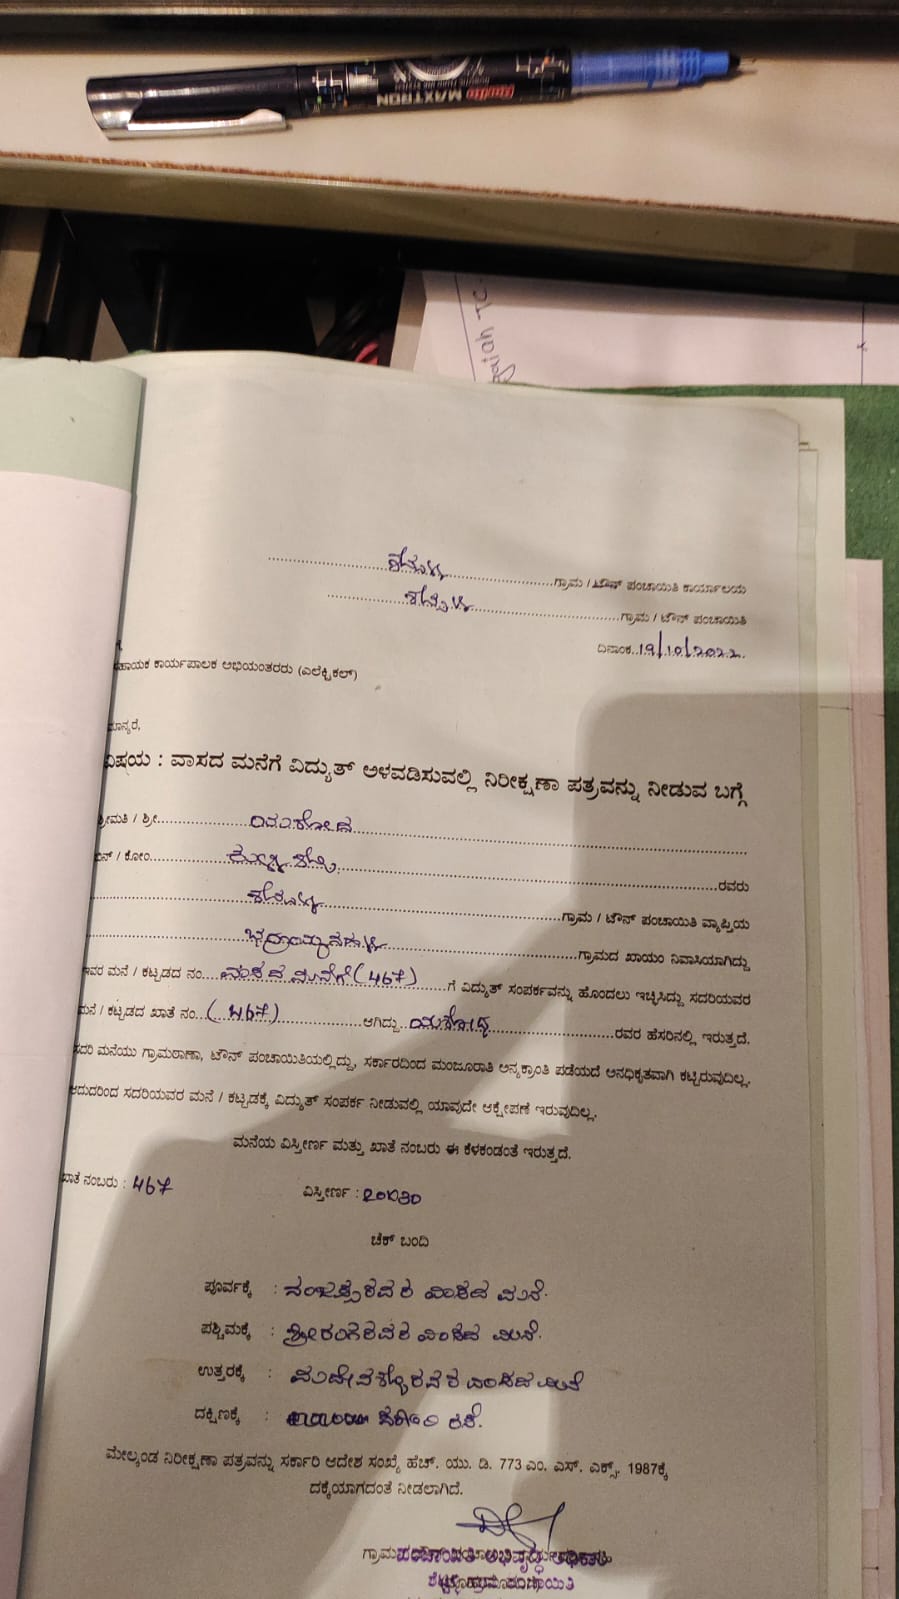 MAXTRON
ಗ್ರಾಮ / ಟೌನ್ ಪಂಚಾಯಿತಿ ಕಾರ್ಯಾಲಯ
ಗ್ರಾಮ / ಟೌನ್ ಪಂಚಾಯಿತಿ
ದಿನಾಂಕ..19/10/2022
ಸಹಾಯಕ ಕಾರ್ಯಪಾಲಕ ಅಭಿಯಂತರರು (ಎಲೆಕ್ಟ್ರಿಕಲ್)
ಮಾನ್ಯರೆ,
ವಿಷಯ : ವಾಸದ ಮನೆಗೆ ವಿದ್ಯುತ್ ಅಳವಡಿಸುವಲ್ಲಿ ನಿರೀಕ್ಷಣಾ ಪತ್ರವನ್ನು ನೀಡುವ ಬಗ್ಗೆ
ಶ್ರೀಮತಿ / ಶ್ರೀ.....ಯಶೋದ
ಬಿನ್ / ಕೋಂ..... .....ರವರು
.....ಗ್ರಾಮ / ಟೌನ್ ಪಂಚಾಯಿತಿ ವ್ಯಾಪ್ತಿಯ
.....ಗ್ರಾಮದ ಖಾಯಂ ನಿವಾಸಿಯಾಗಿದ್ದು
ಇವರ ಮನೆ / ಕಟ್ಟಡದ ನಂ....ವಾಸದ ಮನೆಗೆ (467).....ಗೆ ವಿದ್ಯುತ್ ಸಂಪರ್ಕವನ್ನು ಹೊಂದಲು ಇಚ್ಛಿಸಿದ್ದು ಸದರಿಯವರ
ಮನೆ / ಕಟ್ಟಡದ ಖಾತೆ ನಂ..(467).....ಆಗಿದ್ದು..ಯಶೋದ.....ರವರ ಹೆಸರಿನಲ್ಲಿ ಇರುತ್ತದೆ.
ಸದರಿ ಮನೆಯು ಗ್ರಾಮಠಾಣಾ, ಟೌನ್ ಪಂಚಾಯಿತಿಯಲ್ಲಿದ್ದು, ಸರ್ಕಾರದಿಂದ ಮಂಜೂರಾತಿ ಅನ್ಯಕ್ರಾಂತಿ ಪಡೆಯದೆ ಅನಧಿಕೃತವಾಗಿ ಕಟ್ಟಿರುವುದಿಲ್ಲ.
ಆದುದರಿಂದ ಸದರಿಯವರ ಮನೆ / ಕಟ್ಟಡಕ್ಕೆ ವಿದ್ಯುತ್ ಸಂಪರ್ಕ ನೀಡುವಲ್ಲಿ ಯಾವುದೇ ಆಕ್ಷೇಪಣೆ ಇರುವುದಿಲ್ಲ.
ಮನೆಯ ವಿಸ್ತೀರ್ಣ ಮತ್ತು ಖಾತೆ ನಂಬರು ಈ ಕೆಳಕಂಡಂತೆ ಇರುತ್ತದೆ.
ಖಾತೆ ನಂಬರು : 467 ವಿಸ್ತೀರ್ಣ : 20X30
ಚೆಕ್ ಬಂದಿ
ಪೂರ್ವಕ್ಕೆ : ವಾಸದ ಮನೆ.
ಪಶ್ಚಿಮಕ್ಕೆ : ಶ್ರೀರಂಗರವರ ವಾಸದ ಮನೆ.
ಉತ್ತರಕ್ಕೆ : ವಾಸದ ಮನೆ
ದಕ್ಷಿಣಕ್ಕೆ :
ಮೇಲ್ಕಂಡ ನಿರೀಕ್ಷಣಾ ಪತ್ರವನ್ನು ಸರ್ಕಾರಿ ಆದೇಶ ಸಂಖ್ಯೆ ಹೆಚ್. ಯು. ಡಿ. 773 ಎಂ. ಎಸ್. ಎಕ್ಸ್. 1987ಕ್ಕೆ
ದಕ್ಕೆಯಾಗದಂತೆ ನೀಡಲಾಗಿದೆ.
ಪಂಚಾಯಿತಿ ಅಭಿವೃದ್ಧಿ ಅಧಿಕಾರಿ